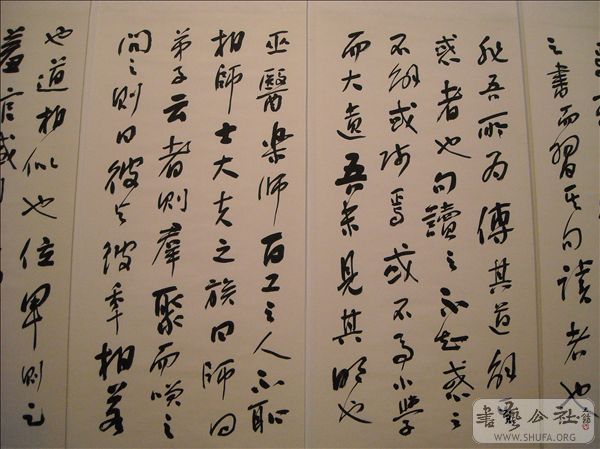 之書而習其句讀者也
非吾所為傳其道解其
惑者也句讀之不知惑之
不解或師焉或不焉小學
而大遺吾未見其明也
巫醫樂師百工之人不恥
相師士大夫之族曰師曰
弟子云者則羣聚而笑之
問之則曰彼與彼年相若
也道相似也位卑則足
羞官盛則
書藝公社
WWW.SHUFA.ORG